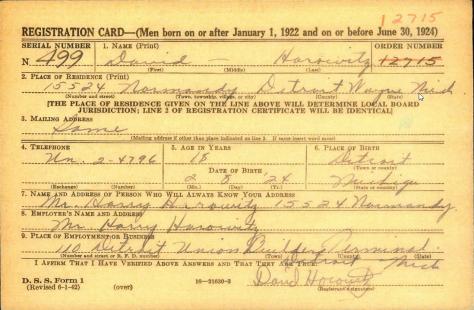 12715
REGISTRATION CARD—(Men born on or after January 1, 1922 and on or before June 30, 1924)
SERIAL NUMBER 1. NAME (Print) ORDER NUMBER
N. 499 David — Horowitz 12715
(First) (Middle) (Last)
2. PLACE OF RESIDENCE (Print)
15524 Normandy Detroit Wayne Mich
(Number and street) (Town, township, village, or city) (County) (State)
[THE PLACE OF RESIDENCE GIVEN ON THE LINE ABOVE WILL DETERMINE LOCAL BOARD
JURISDICTION; LINE 2 OF REGISTRATION CERTIFICATE WILL BE IDENTICAL]
3. MAILING ADDRESS
Same
(Mailing address if other than place indicated on line 2. If same insert word same)
4. TELEPHONE 5. AGE IN YEARS 6. PLACE OF BIRTH
Un. 2-4796 18 Detroit
DATE OF BIRTH (Town or county)
2 8 24
(Exchange) (Number) (Mo.) (Day) (Yr.) (State or country)
7. NAME AND ADDRESS OF PERSON WHO WILL ALWAYS KNOW YOUR ADDRESS
Mr. Harry Horowitz 15524 Normandy
8. EMPLOYER'S NAME AND ADDRESS
Mr. Harry Horowitz
9. PLACE OF EMPLOYMENT OR BUSINESS
110 Detroit Union Building Terminal
(Number and street or R. F. D. number) (Town) (County) (State)
Detroit Mich
I AFFIRM THAT I HAVE VERIFIED ABOVE ANSWERS AND THAT THEY ARE TRUE.
D. S. S. Form 1
(Revised 6-1-42) (over) 16—21630-2 David Horowitz
(Registrant's signature)